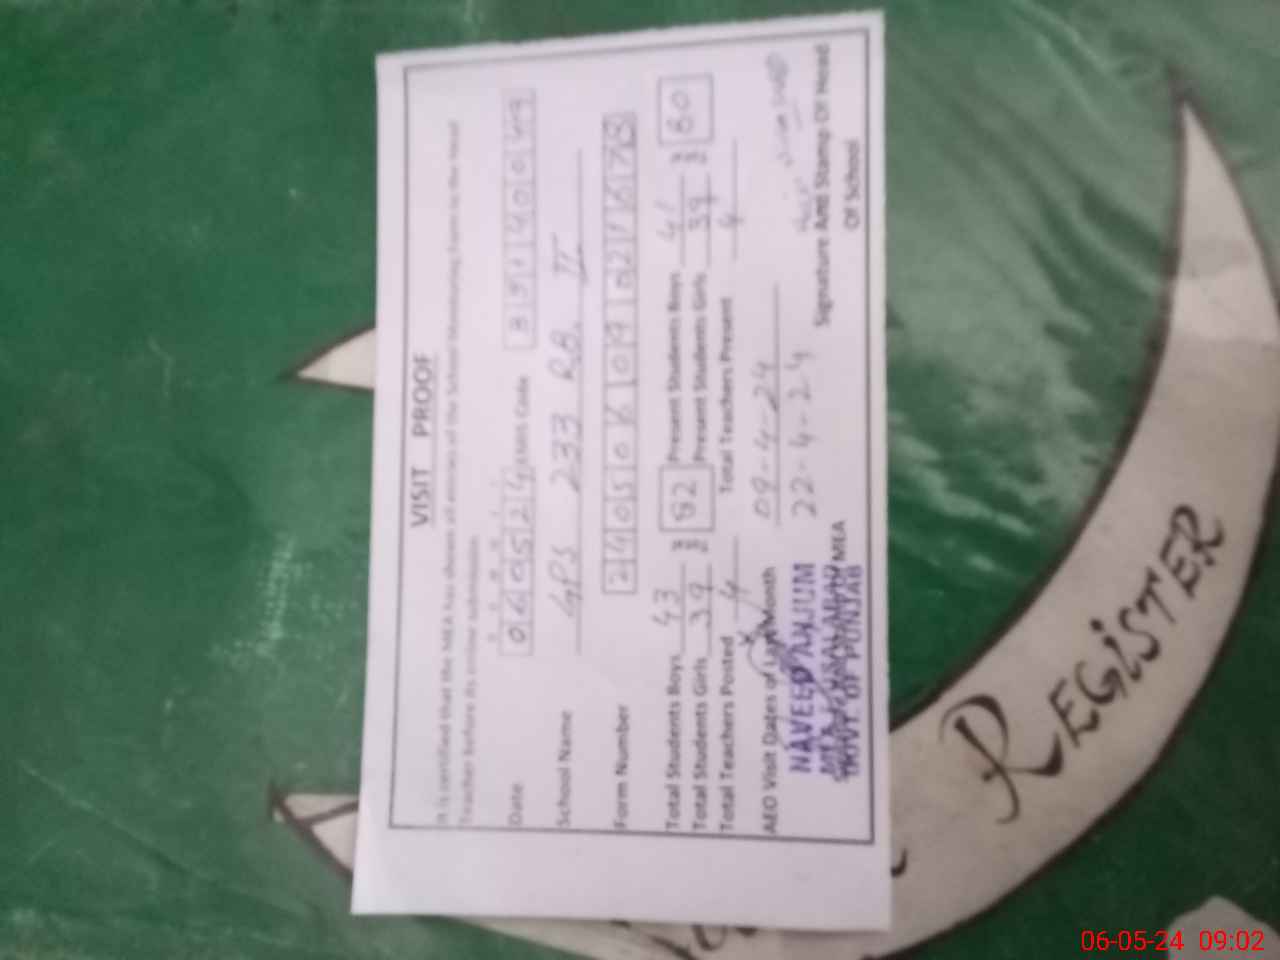 VISIT PROOF
It is certified that the MEA has shown all entries of the School Monitoring Form to the Head
Teacher before its online submission.
Date 060524 EMIS Code
School Name GPS 233 RB. II
Form Number
Total Students Boys 43 82 Present Students Boys 41 80
Total Students Girls 39 Present Students Girls 39
Total Teachers Posted 4 Total Teachers Present 4
AEO Visit Dates of Last Month 09-4-24
22-4-24
NAVEED ANJUM
MEA
GOVT. OF PUNJAB
Signature And Stamp Of Head
Of School
REGISTER
06-05-24 09:02